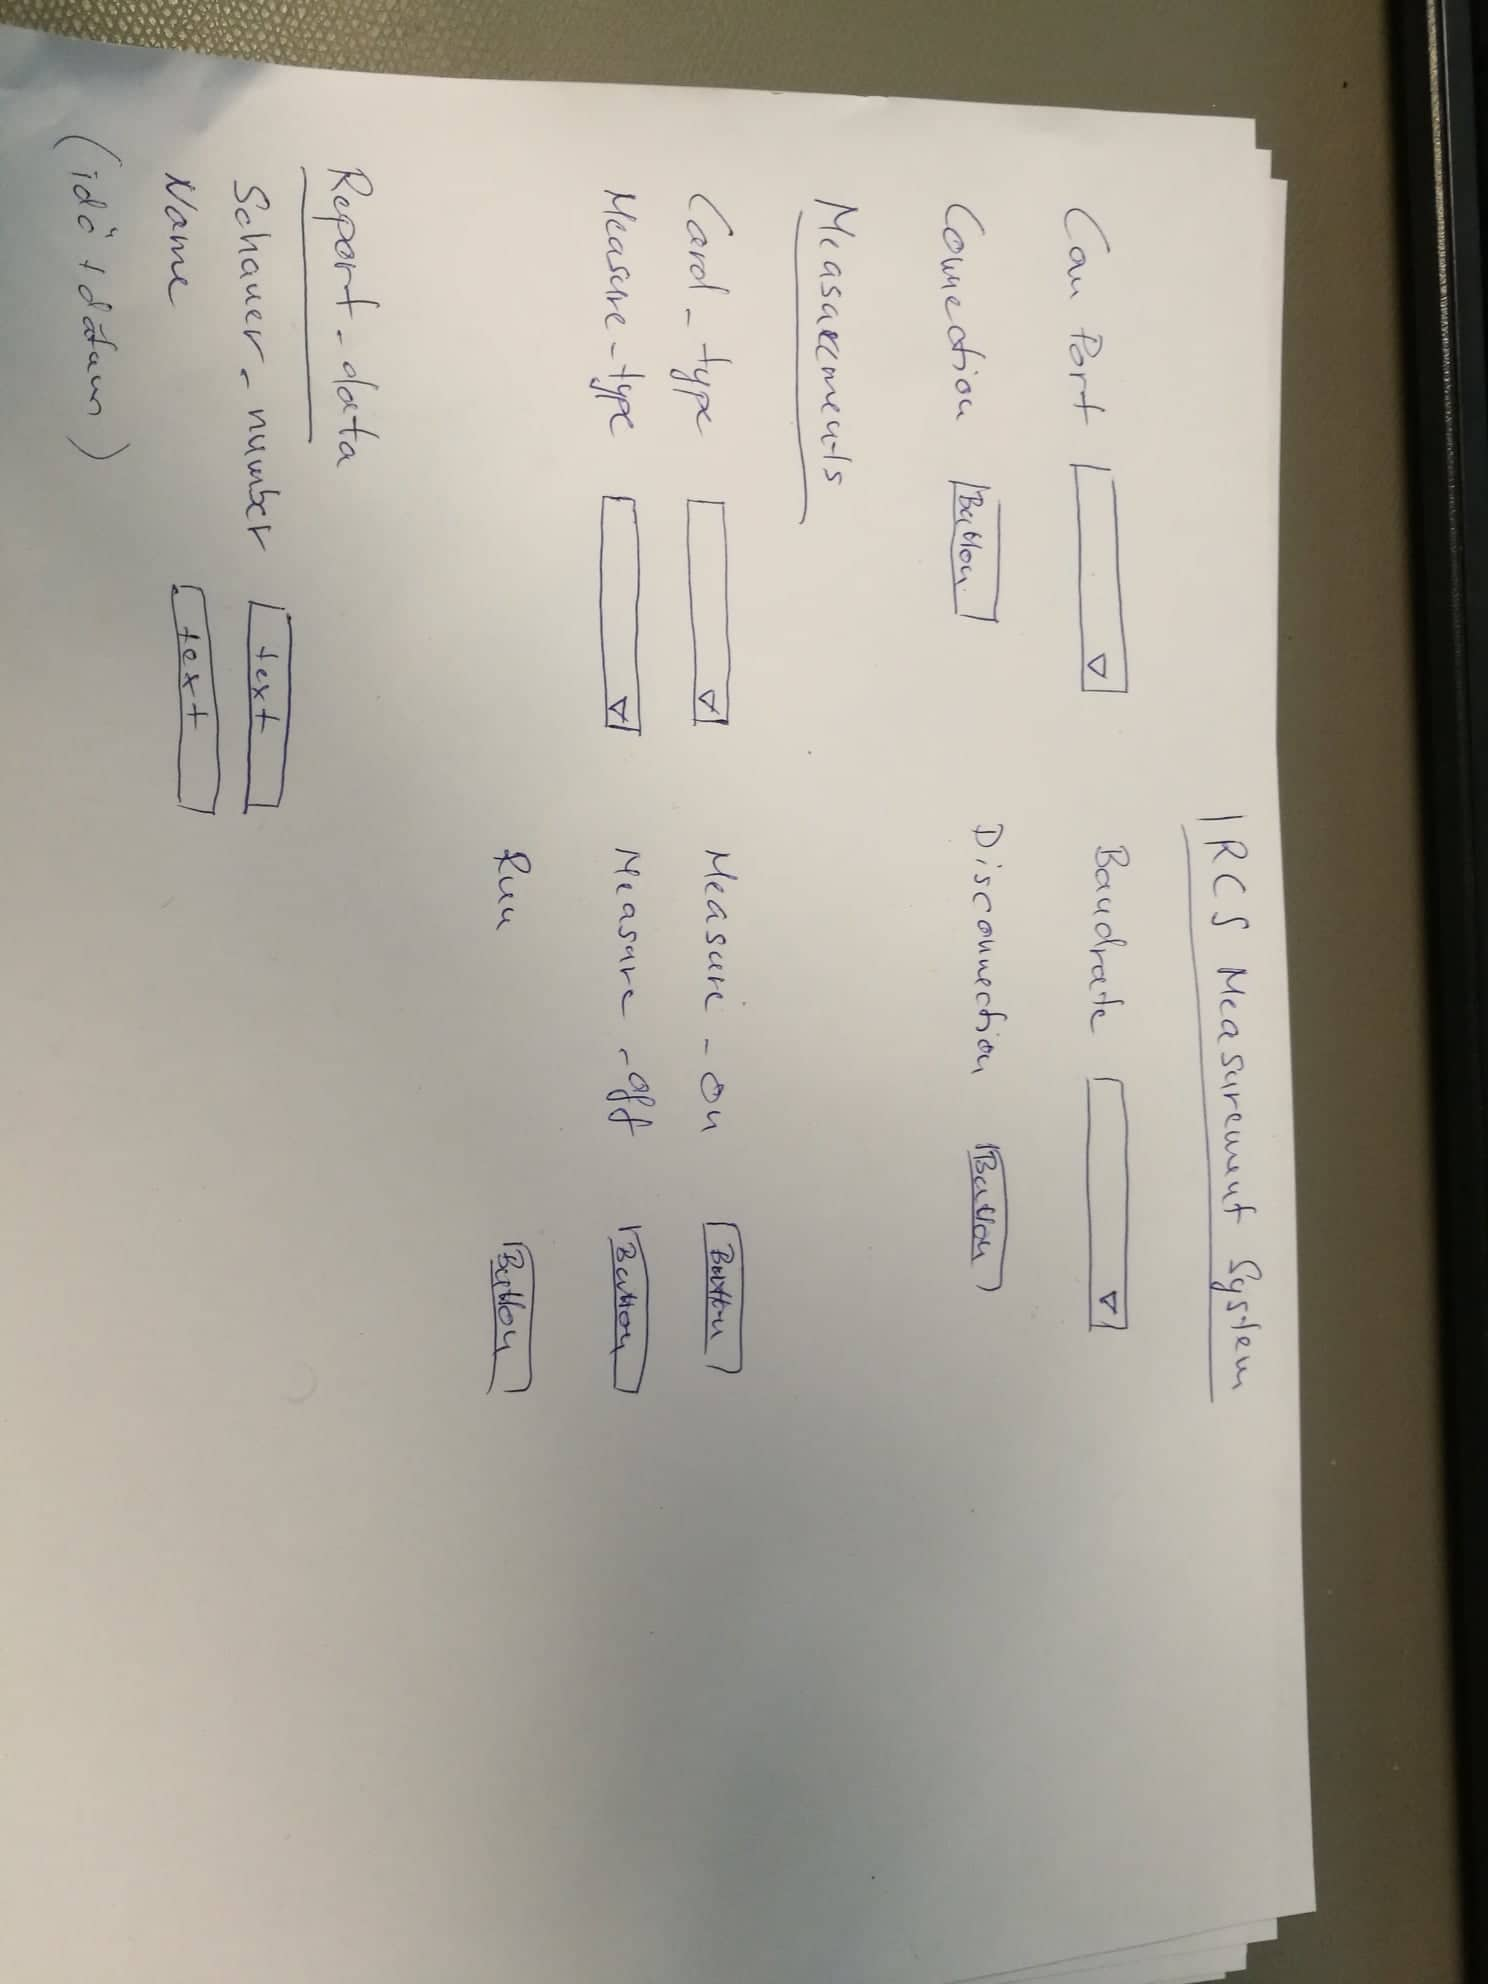 IRCS Measurement System
Com Port Baudrate
Connection Button Disconnection Button
Measurements
Card-type Measure-on Button
Measure-type Measure-off Button
Run Button
Report-data
Schauer-number text
Name text
(idő + dátum)